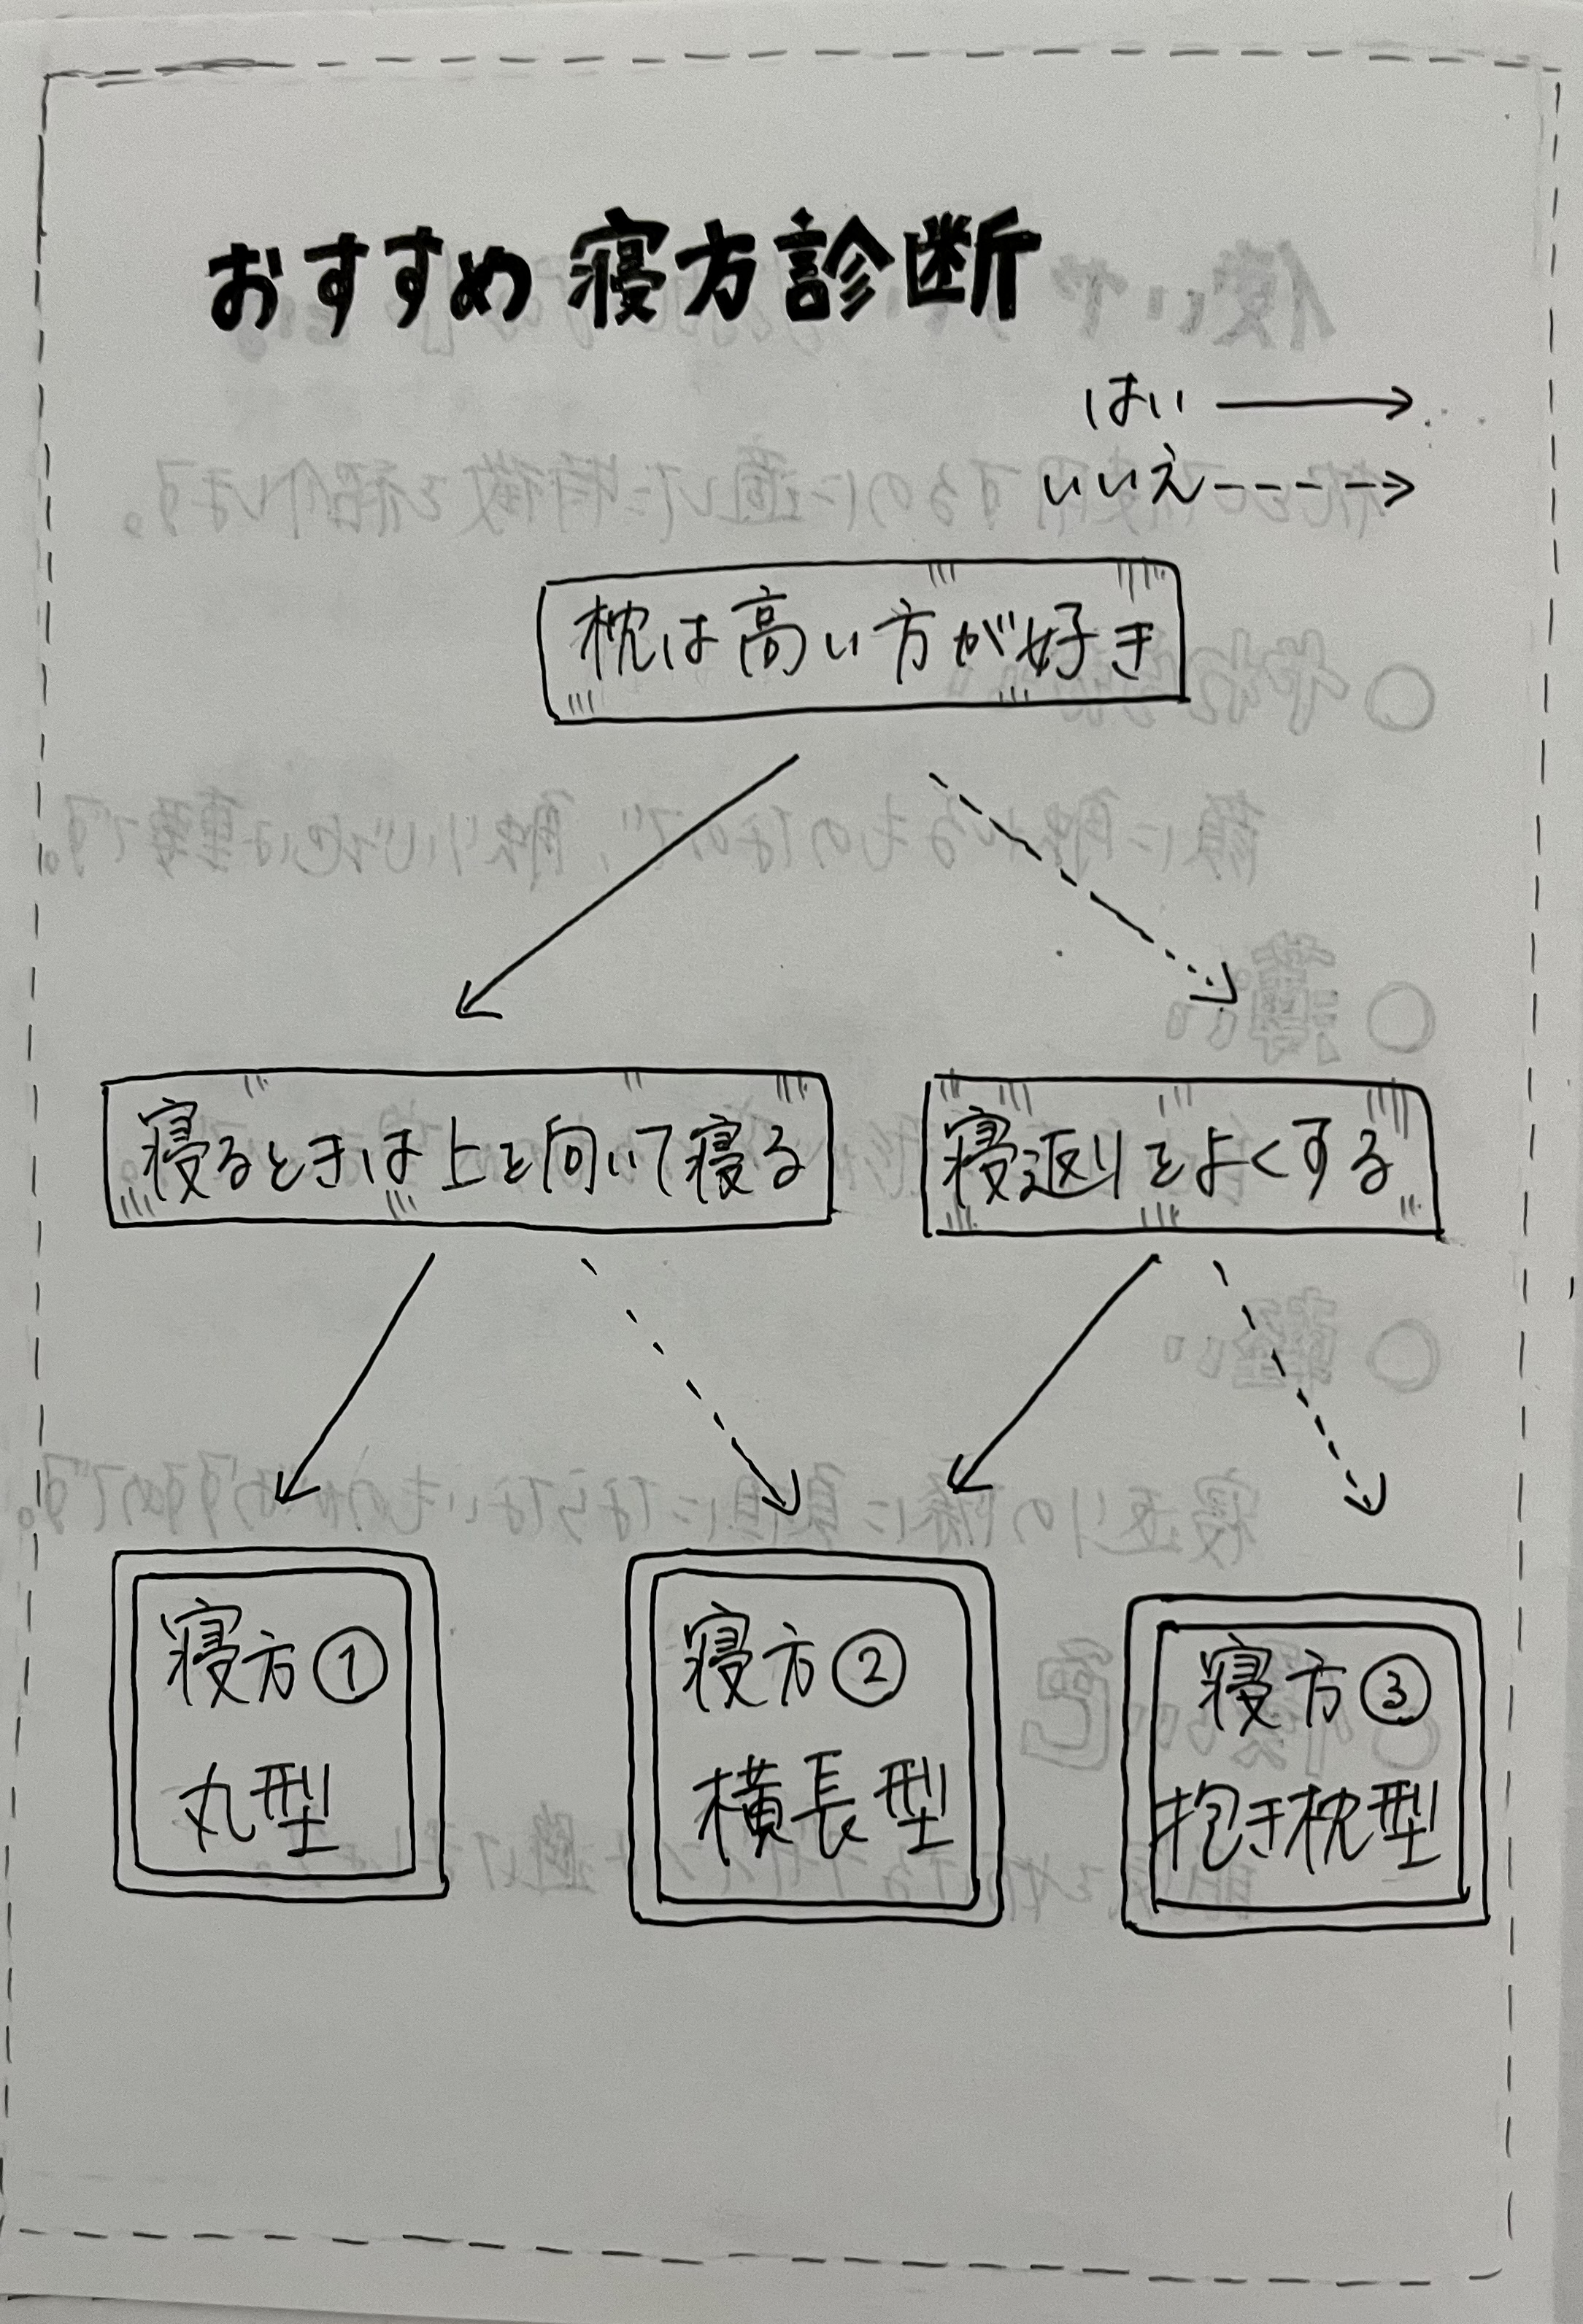 おすすめ寝方診断
はい
いいえ
枕は高い方が好き
寝るときは上を向いて寝る
寝返りをよくする
寝方①
丸型
寝方②
横長型
寝方③
抱き枕型